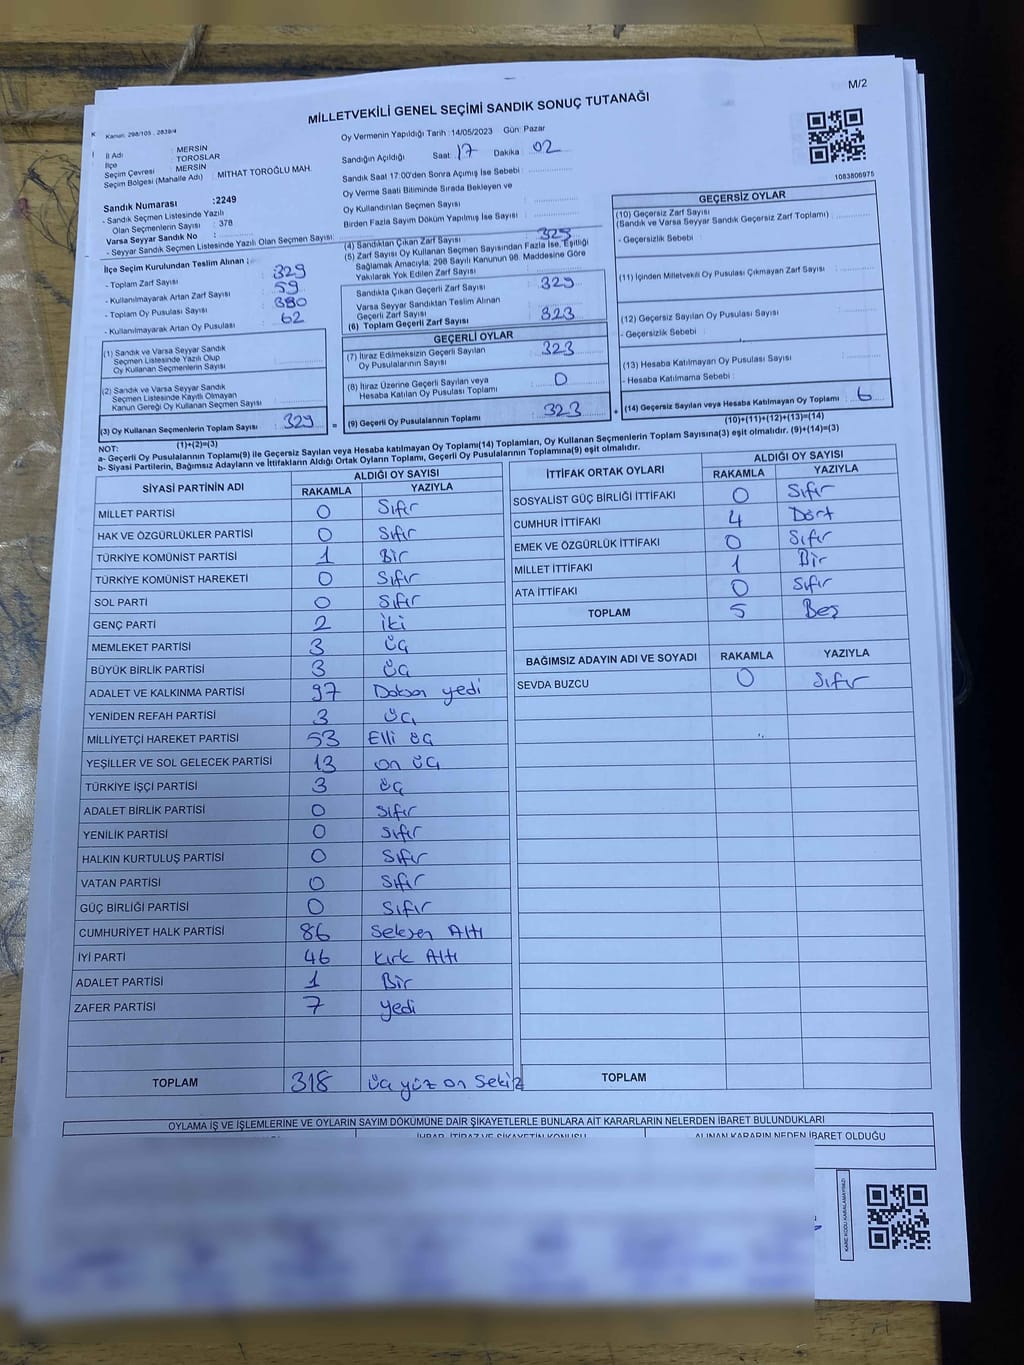 M/2
MİLLETVEKİLİ GENEL SEÇİMİ SANDIK SONUÇ TUTANAĞI
Kanun: 298/105 , 2839/4
İl Adı : MERSİN
İlçe : TOROSLAR
Seçim Çevresi : MERSİN
Seçim Bölgesi (Mahalle Adı) : MİTHAT TOROĞLU MAH.
Oy Vermenin Yapıldığı Tarih :14/05/2023 Gün: Pazar
Sandığın Açıldığı Saat : 17 Dakika : 02
Sandık Saat 17:00'den Sonra Açılmış İse Sebebi :
Oy Verme Saati Bitiminde Sırada Bekleyen ve
Oy Kullandırılan Seçmen Sayısı :
Birden Fazla Sayım Döküm Yapılmış İse Sayısı :
1083806975
Sandık Numarası :2249
- Sandık Seçmen Listesinde Yazılı
Olan Seçmenlerin Sayısı : 378
Varsa Seyyar Sandık No :
- Seyyar Sandık Seçmen Listesinde Yazılı Olan Seçmen Sayısı:
İlçe Seçim Kurulundan Teslim Alınan ;
- Toplam Zarf Sayısı : 329
- Kullanılmayarak Artan Zarf Sayısı : 59
- Toplam Oy Pusulası Sayısı : 380
- Kullanılmayarak Artan Oy Pusulası : 62
(1) Sandık ve Varsa Seyyar Sandık
Seçmen Listesinde Yazılı Olup
Oy Kullanan Seçmenlerin Sayısı :
(2) Sandık ve Varsa Seyyar Sandık
Seçmen Listesinde Kayıtlı Olmayan
Kanun Gereği Oy Kullanan Seçmen Sayısı :
(3) Oy Kullanan Seçmenlerin Toplam Sayısı : 329
(1)+(2)=(3)
(4) Sandıktan Çıkan Zarf Sayısı : 329
(5) Zarf Sayısı Oy Kullanan Seçmen Sayısından Fazla İse, Eşitliği
Sağlamak Amacıyla; 298 Sayılı Kanunun 98. Maddesine Göre
Yakılarak Yok Edilen Zarf Sayısı :
Sandıkta Çıkan Geçerli Zarf Sayısı : 329
Varsa Seyyar Sandıktan Teslim Alınan
Geçerli Zarf Sayısı :
(6) Toplam Geçerli Zarf Sayısı : 323
GEÇERLİ OYLAR
(7) İtiraz Edilmeksizin Geçerli Sayılan
Oy Pusulalarının Sayısı : 323
(8) İtiraz Üzerine Geçerli Sayılan veya
Hesaba Katılan Oy Pusulası Toplamı : 0
(9) Geçerli Oy Pusulalarının Toplamı : 323
GEÇERSİZ OYLAR
(10) Geçersiz Zarf Sayısı
(Sandık ve Varsa Seyyar Sandık Geçersiz Zarf Toplamı) :
- Geçersizlik Sebebi :
(11) İçinden Milletvekili Oy Pusulası Çıkmayan Zarf Sayısı :
(12) Geçersiz Sayılan Oy Pusulası Sayısı :
- Geçersizlik Sebebi :
(13) Hesaba Katılmayan Oy Pusulası Sayısı :
- Hesaba Katılmama Sebebi :
(14) Geçersiz Sayılan veya Hesaba Katılmayan Oy Toplamı : 6
(10)+(11)+(12)+(13)=(14)
NOT:
a- Geçerli Oy Pusulalarının Toplamı(9) ile Geçersiz Sayılan veya Hesaba katılmayan Oy Toplamı(14) Toplamları, Oy Kullanan Seçmenlerin Toplam Sayısına(3) eşit olmalıdır. (9)+(14)=(3)
b- Siyasi Partilerin, Bağımsız Adayların ve İttifakların Aldığı Ortak Oyların Toplamı, Geçerli Oy Pusulalarının Toplamına(9) eşit olmalıdır.
SİYASİ PARTİNİN ADI ALDIĞI OY SAYISI
RAKAMLA YAZIYLA
MİLLET PARTİSİ 0 Sıfır
HAK VE ÖZGÜRLÜKLER PARTİSİ 0 Sıfır
TÜRKİYE KOMÜNİST PARTİSİ 1 Bir
TÜRKİYE KOMÜNİST HAREKETİ 0 Sıfır
SOL PARTİ 0 Sıfır
GENÇ PARTİ 2 iki
MEMLEKET PARTİSİ 3 üç
BÜYÜK BİRLİK PARTİSİ 3 üç
ADALET VE KALKINMA PARTİSİ 97 Doksan yedi
YENİDEN REFAH PARTİSİ 3 üç
MİLLİYETÇİ HAREKET PARTİSİ 53 Elli üç
YEŞİLLER VE SOL GELECEK PARTİSİ 13 on üç
TÜRKİYE İŞÇİ PARTİSİ 3 üç
ADALET BİRLİK PARTİSİ 0 Sıfır
YENİLİK PARTİSİ 0 Sıfır
HALKIN KURTULUŞ PARTİSİ 0 Sıfır
VATAN PARTİSİ 0 Sıfır
GÜÇ BİRLİĞİ PARTİSİ 0 Sıfır
CUMHURİYET HALK PARTİSİ 86 Seksen Altı
İYİ PARTİ 46 Kırk Altı
ADALET PARTİSİ 1 Bir
ZAFER PARTİSİ 7 yedi
TOPLAM 318 üç yüz on Sekiz
İTTİFAK ORTAK OYLARI ALDIĞI OY SAYISI
RAKAMLA YAZIYLA
SOSYALİST GÜÇ BİRLİĞİ İTTİFAKI 0 Sıfır
CUMHUR İTTİFAKI 4 Dört
EMEK VE ÖZGÜRLÜK İTTİFAKI 0 Sıfır
MİLLET İTTİFAKI 1 Bir
ATA İTTİFAKI 0 Sıfır
TOPLAM 5 Beş
BAĞIMSIZ ADAYIN ADI VE SOYADI RAKAMLA YAZIYLA
SEVDA BUZCU 0 Sıfır
TOPLAM
OYLAMA İŞ VE İŞLEMLERİNE VE OYLARIN SAYIM DÖKÜMÜNE DAİR ŞİKAYETLERLE BUNLARA AİT KARARLARIN NELERDEN İBARET BULUNDUKLARI
İHBAR, İTİRAZ VE ŞİKAYETİN KONUSU ALINAN KARARIN NEDEN İBARET OLDUĞU
KARE KODU KARALAMAYINIZ!